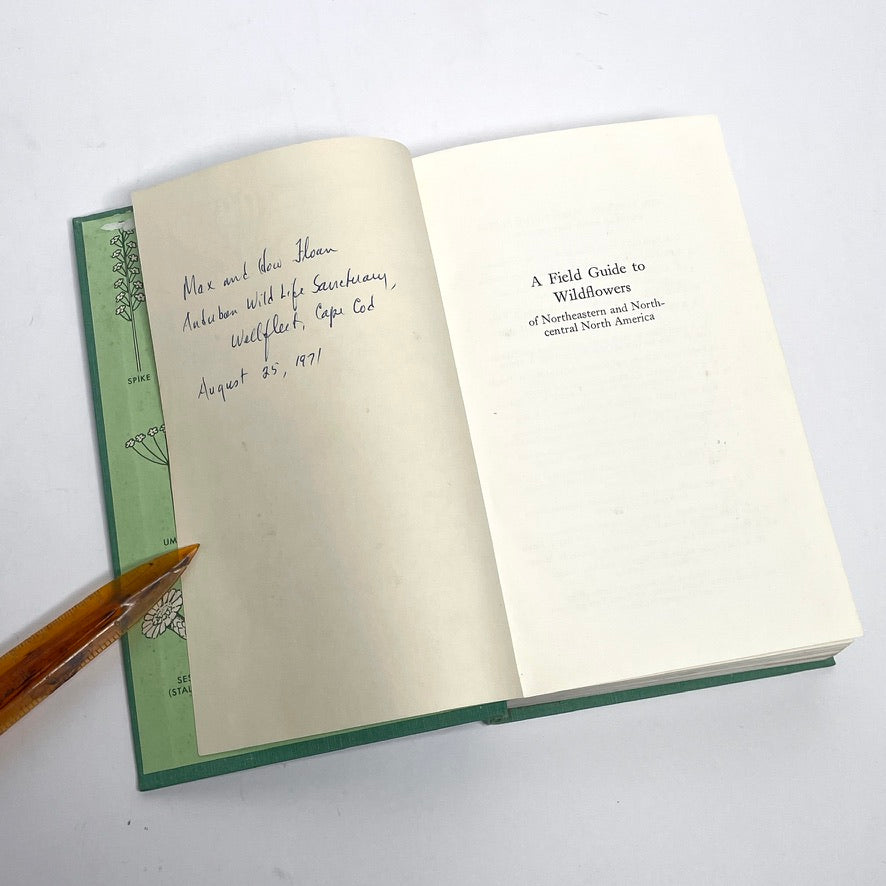 Max and Floan
Audubon Wild Life Sanctuary,
Wellfleet, Cape Cod
August 25, 1971
SPIKE
UM
SES
(STAL
A Field Guide to
Wildflowers
of Northeastern and North-
central North America